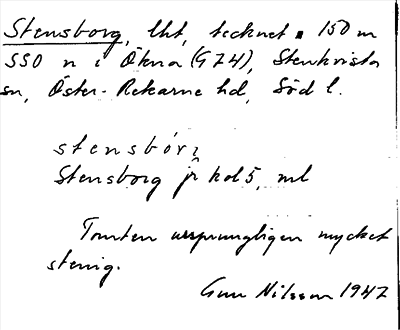 Stensborg, lht, tecknet ▪ 150 m
SSO n i Ökna (G74), Stenkvista
sn, Öster-Rekarne hd, Södl.
stensbór
Stensborg jr kol 5, ml
Tomten ursprungligen mycket
stenig.
Gun Nilsson 1947